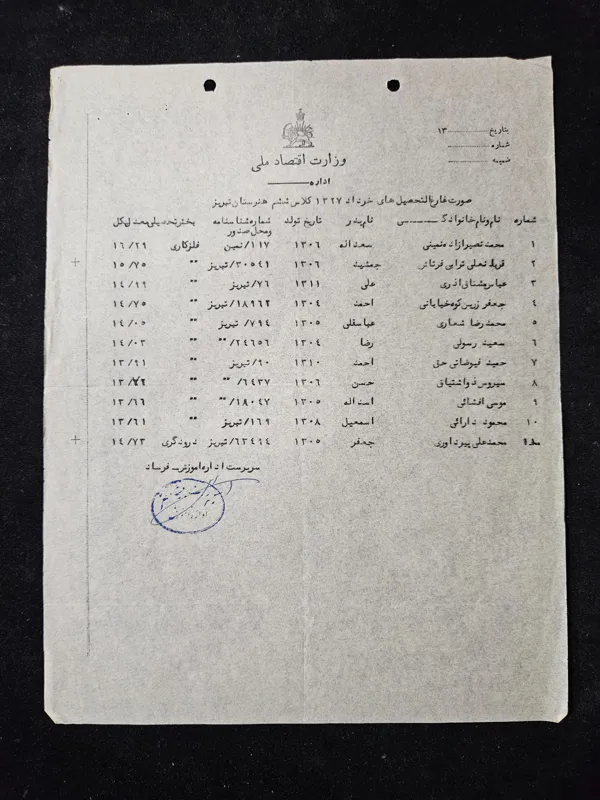 بتاریخ ــــــــ ۱۳
شماره ــــــــ
ضمیمه ــــــــ
وزارت اقتصاد ملی
اداره ــــــــ
صورت فارغ التحصیل های خرداد ۱۳۲۷ کلاس ششم هنرستان تبریز
شماره نام و نام خانوادگـــــــی نام پدر تاریخ تولد شماره شناسنامه ومحل صدور بخش تحصیلی معدل کل
۱ محمد نصیرزاده نمینی سعداله ۱۳۰۶ ۱۱۷/ نمین فلزکاری ۱۶/۲۹
۲ قربانعلی ترابی فرتاش جمشید ۱۳۰۶ ۳۰۵۴۱/ تبریز " ۱۵/۷۵
۳ عباس مشتاق اذری علی ۱۳۱۱ ۷۶/ تبریز " ۱۴/۹۹
۴ جعفر زرین کوه خیابانی احمد ۱۳۰۴ ۱۸۹۶۲/ تبریز " ۱۴/۷۵
۵ محمد رضا شعاری عباسقلی ۱۳۰۵ ۷۹۴/ تبریز " ۱۴/۰۵
۶ سعید رسولی رضا ۱۳۰۴ ۲۴۶۵۶/ " " ۱۴/۰۳
۷ حمید فیوضاتی حق احمد ۱۳۱۰ ۹۰/ تبریز " ۱۳/۹۱
۸ سیروس ذواشتیاق حسن ۱۳۰۶ ۶۴۳۷/ " "
۹ موسی افشائی اسداله ۱۳۰۵ ۱۸۰۴۷/ " " ۱۳/۶۶
۱۰ محمود دارائی اسمعیل ۱۳۰۸ ۱۶۹/ تبریز " ۱۳/۶۱
محمدعلی پیرداوری جعفر ۱۳۰۵ ۶۳۴۶۴/ تبریز درودگری ۱۴/۷۳
سرپرست اداره اموزش